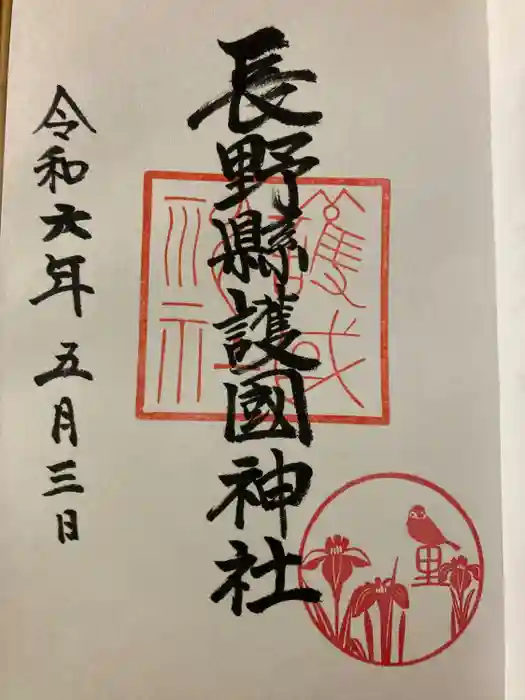 長野縣護國神社
令和六年 五月三日
里